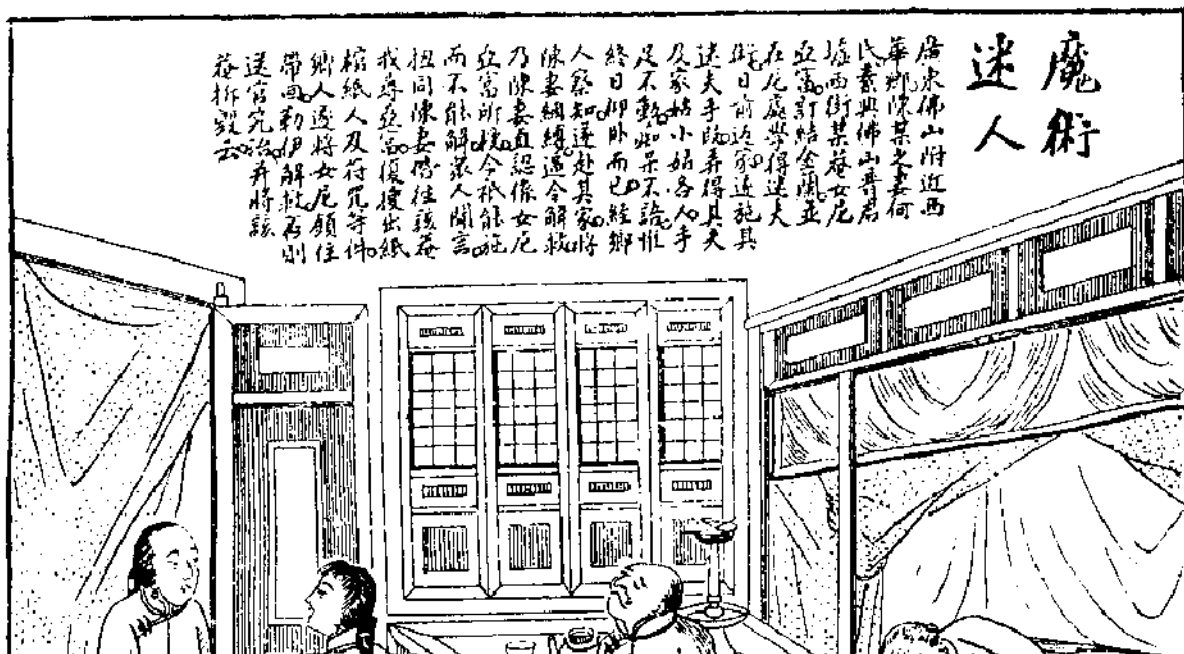 魔術
迷人
廣東佛山附近西
華鄉陳某之妻何
氏素與佛山普君
墟西街某菴女尼
亞富訂結金蘭並
在尼處學得迷夫
術日前返家近施其
迷夫手段弄得其夫
及家姑小姑各人手
足不動如呆不語惟
終日仰卧而已經鄉
人察知遂赴其家將
陳妻綑縛逼令解救
乃陳妻直認係女尼
亞富所授今祇能施
而不能解眾人聞言
扭同陳妻偕往該菴
找尋亞富復搜出紙
棺紙人及符咒等件
鄉人遂將女尼領住
帶回勒伊解救否則
送官究治并將該
菴拆毀云